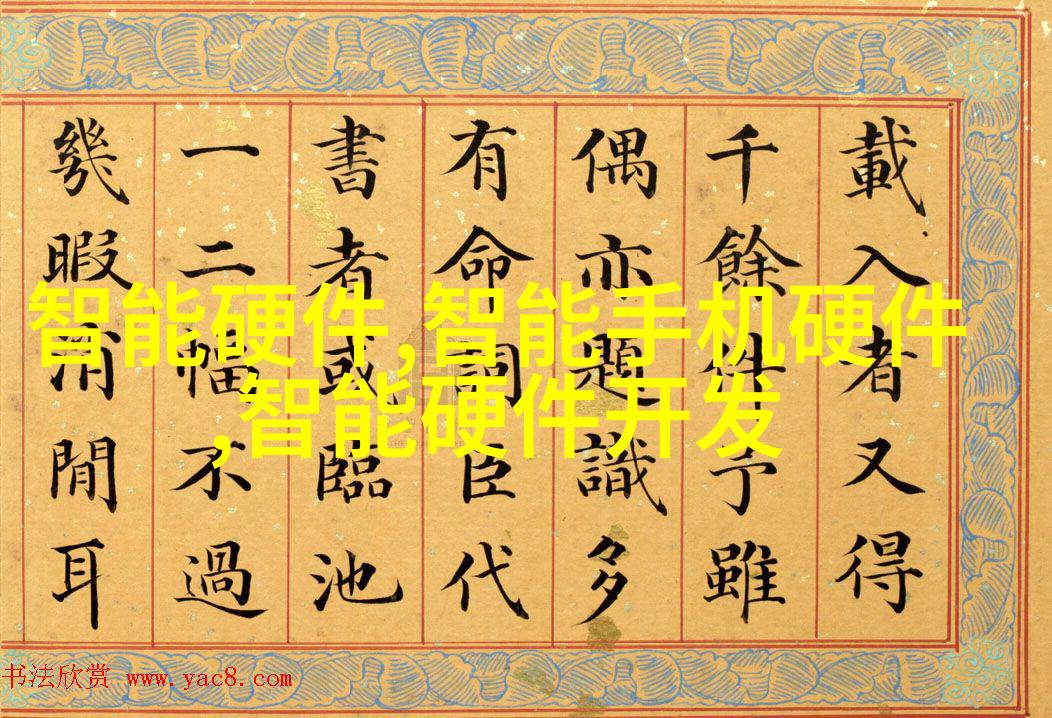 載入者又得
千餘件予雖
偶亦題識多
有命詞臣代
書者或臨池
一二幅不過
幾暇消閒耳
智能硬件,智能手机硬件
,智能硬件开发
书法欣赏 www.yac8.com